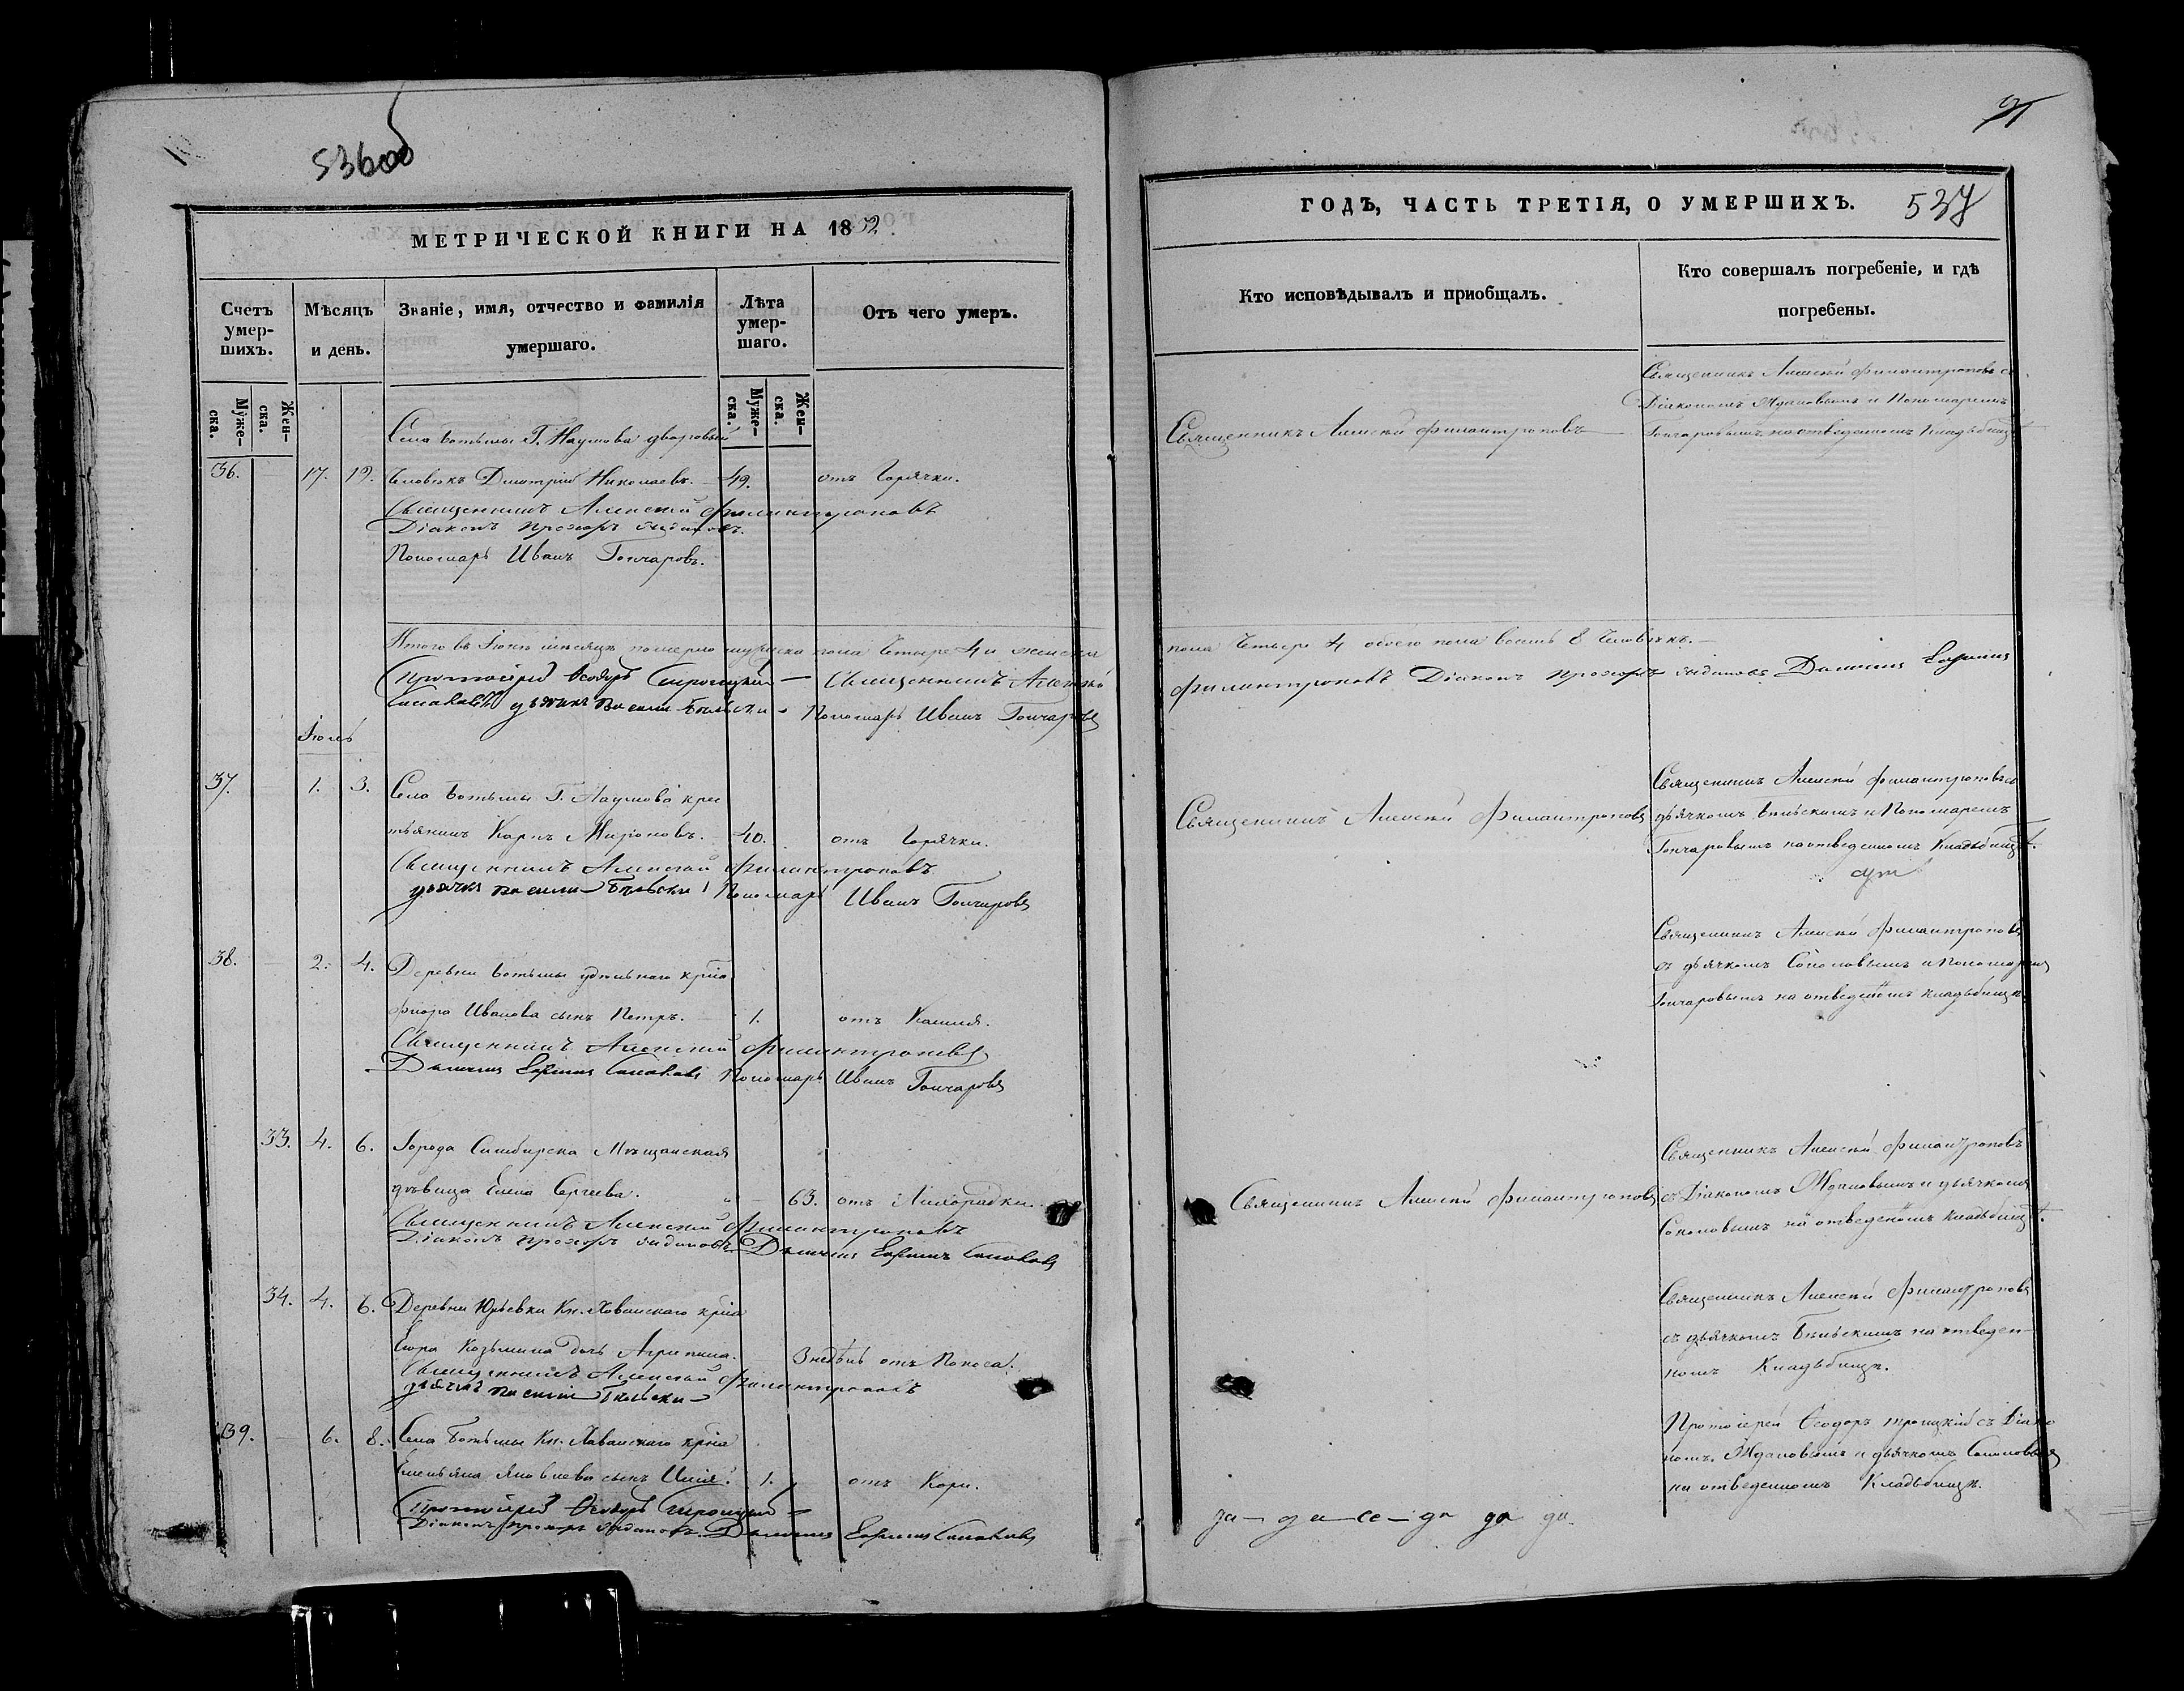 536об
МЕТРИЧЕСКОЙ КНИГИ НА 1852
Счетъ умер-шихъ.
Мѣсяцъ и день.
Званіе, имя, отчество и фамилія умершаго.
Лѣта умер-шаго.
Отъ чего умеръ.
Муже-ска.
Жен-ска.
Муже-ска.
Жен-ска.
Села Ботьмы Г. Наумова дворовый
36. 17. 19. Человѣкъ Дмитрій Николаевъ. 49. отъ Горячки.
Священникъ Алексѣй Филантроповъ
Діаконъ Прохоръ
Пономарь Иванъ Гончаровъ.
Итого въ Іюнѣ мѣсяцѣ померло мужеска пола четыре 4 и женска
Протоіерей Ѳеодоръ Троицкій Священникъ Алексѣй
Соколовъ дьячекъ Василій Бѣльскій Пономарь Иванъ Гончаровъ
Іюль
37. 1. 3. Села Ботьмы Г. Наумова крес
тьянинъ Карпъ Мироновъ. 40. отъ Горячки.
Священникъ Алексѣй Филантроповъ
дьячекъ Василій Бѣльскій Пономарь Иванъ Гончаровъ
38. 2. 4. Деревни Ботьмы удѣльнаго кр-на
Ивановa сынъ Петръ. 1. отъ Кашля.
Священникъ Алексѣй Филантроповъ
Дьячекъ Соколовъ Пономарь Иванъ Гончаровъ
33. 4. 6. Города Симбирска Мѣщанская
дѣвица Елена Сергеева. 63. отъ Лихорадки.
Священникъ Алексѣй Филантроповъ
Діаконъ Прохоръ Дьячекъ Соколовъ
34. 4. 6. Деревни Юрьевки Кн. Хованскаго кр-на
Козьмина дочь Агрипина. 3 недѣль отъ Поноса.
Священникъ Алексѣй Филантроповъ
дьячекъ Василій Бѣльскій
39. 6. 8. Села Ботьмы Кн. Хованскаго кр-на
Емельяна Яковлева сынъ Илія. 1. отъ Кори.
Протоіерей Ѳеодоръ Троицкій
Діаконъ Прохоръ Дьячекъ Соколовъ
ГОДЪ, ЧАСТЬ ТРЕТІЯ, О УМЕРШИХЪ.
537
Кто исповѣдывалъ и приобщалъ.
Кто совершалъ погребеніе, и гдѣ
погребены.
Священникъ Алексѣй Филантроповъ съ
Діакономъ Ждановымъ и Пономаремъ
Священникъ Алексѣй Филантроповъ Гончаровымъ на отведенномъ Кладбищѣ
пола четыре 4 обоего пола восемь 8 Человѣкъ.
Филантроповъ Діаконъ Прохоръ Дьячекъ
Священникъ Алексѣй Филантроповъ съ
Священникъ Алексѣй Филантроповъ дьячкомъ Бѣльскимъ и Пономаремъ
Гончаровымъ на отведенномъ Кладбищѣ.
Священникъ Алексѣй Филантроповъ
съ дьячкомъ Соколовымъ и Пономаремъ
Гончаровымъ на отведенномъ кладбищѣ.
Священникъ Алексѣй Филантроповъ
Священникъ Алексѣй Филантроповъ съ Діакономъ Ждановымъ и дьячкомъ
Соколовымъ на отведенномъ кладбищѣ.
Священникъ Алексѣй Филантроповъ
съ дьячкомъ Бѣльскимъ на отведен-
номъ Кладбищѣ.
Протоіерей Ѳеодоръ Троицкій съ Діако
номъ Ждановымъ и дьячкомъ Соколовымъ
на отведенномъ Кладбищѣ.